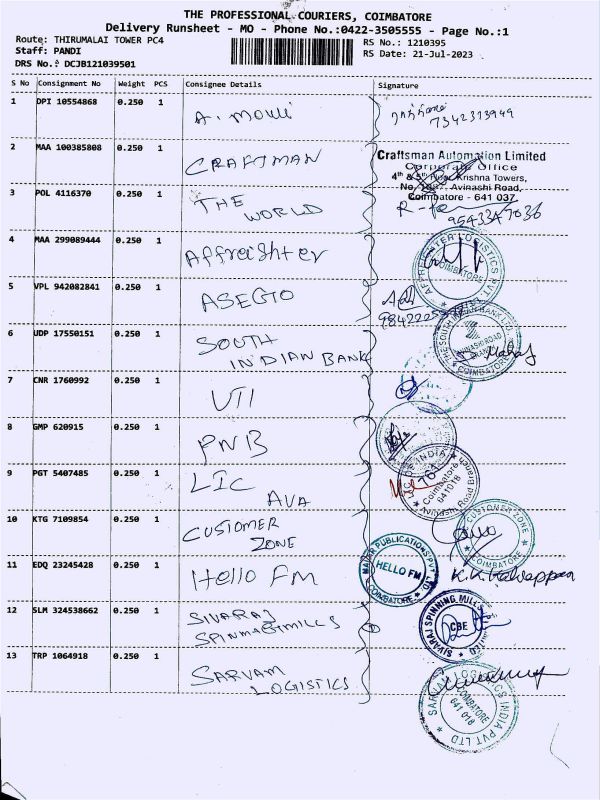 THE PROFESSIONAL COURIERS, COIMBATORE
Delivery Runsheet - MO - Phone No.:0422-3505555 - Page No.:1
Route: THIRUMALAI TOWER PC4
RS No.: 1210395
Staff: PANDI
RS Date: 21-Jul-2023
DRS No.: DCJB121039501
S No Consignment No Weight PCS Consignee Details Signature
1 DPI 10554868 0.250 1 A. Mouli
7342313949
2 MAA 100385808 0.250 1 CRAFTMAN
Craftsman Automation Limited
Corporate Office
4th & 5th Floor, Krishna Towers,
Avinashi Road,
Coimbatore - 641 037.
3 POL 4116370 0.250 1 THE WORLD
4 MAA 299089444 0.250 1 Affreighter
AFFREIGHTER LOGISTICS PVT
COIMBATORE
5 VPL 942082841 0.250 1 ASEGTO
6 UDP 17550151 0.250 1 SOUTH
INDIAN BANK
THE SOUTH INDIAN BANK LTD.
AVINASHI ROAD
BRANCH
COIMBATORE
7 CNR 1760992 0.250 1 UTI
8 GMP 620915 0.250 1 PNB
9 PGT 5407485 0.250 1 LIC
AVA
OF INDIA
761
Coimbatore
641018
Avinashi Road Branch
10 KTG 7109854 0.250 1 CUSTOMER
ZONE
CUSTOMER ZONE
COIMBATORE
11 EDQ 23245428 0.250 1 Hello FM
MALAR PUBLICATIONS PVT LTD
HELLO FM
COIMBATORE
12 SLM 324538662 0.250 1 SIVARAJ
SPINNING MILLS
SIVARAJ SPINNING MILLS
CBE
13 TRP 1064918 0.250 1 SARVAM
LOGISTICS
SARVAM LOGISTICS INDIA PVT LTD
COIMBATORE
641 018